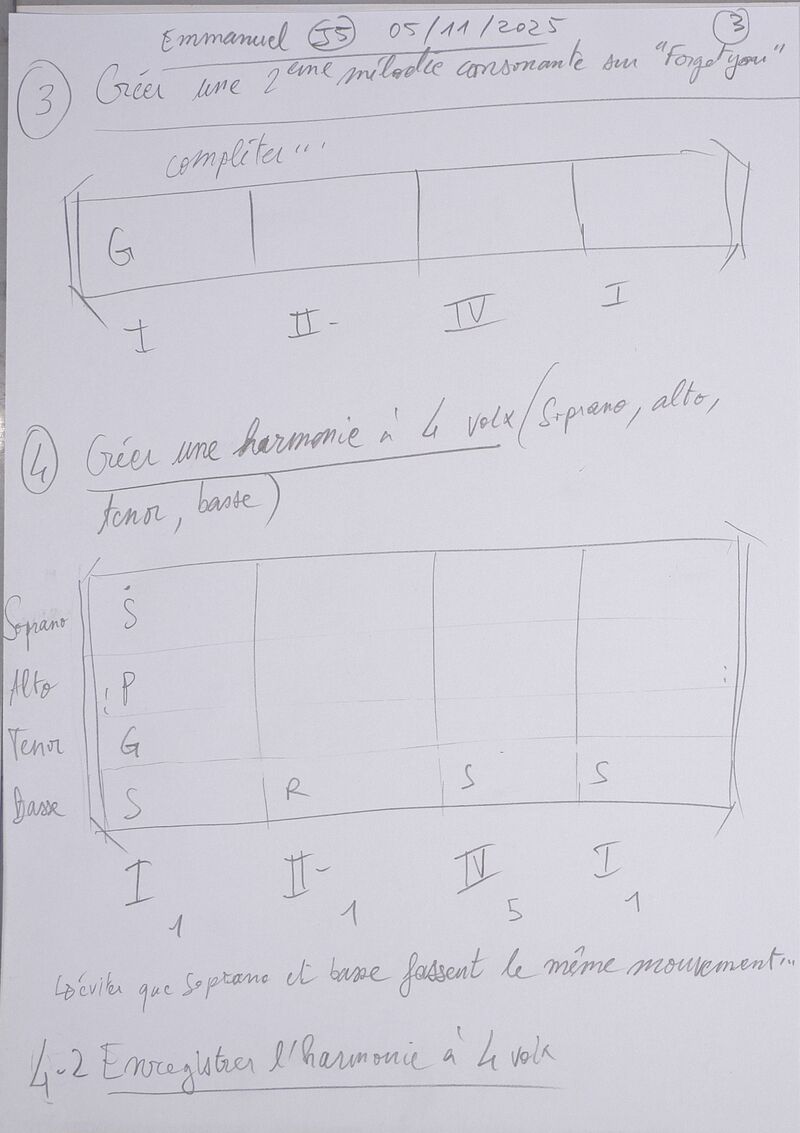 Emmanuel 55 05/11/2025 3
3 Créer une 2ème mélodie consonante sur "Forget you"
compléter...
G
I II- IV I
4 Créer une harmonie à 4 voix (Soprano, alto,
tenor, basse)
Soprano S
Alto P
Tenor G
Basse S R S S
I 1 II- 1 IV 5 I 1
↳ éviter que Soprano et basse fassent le même mouvement...
4-2 Enregistrer l'harmonie à 4 voix